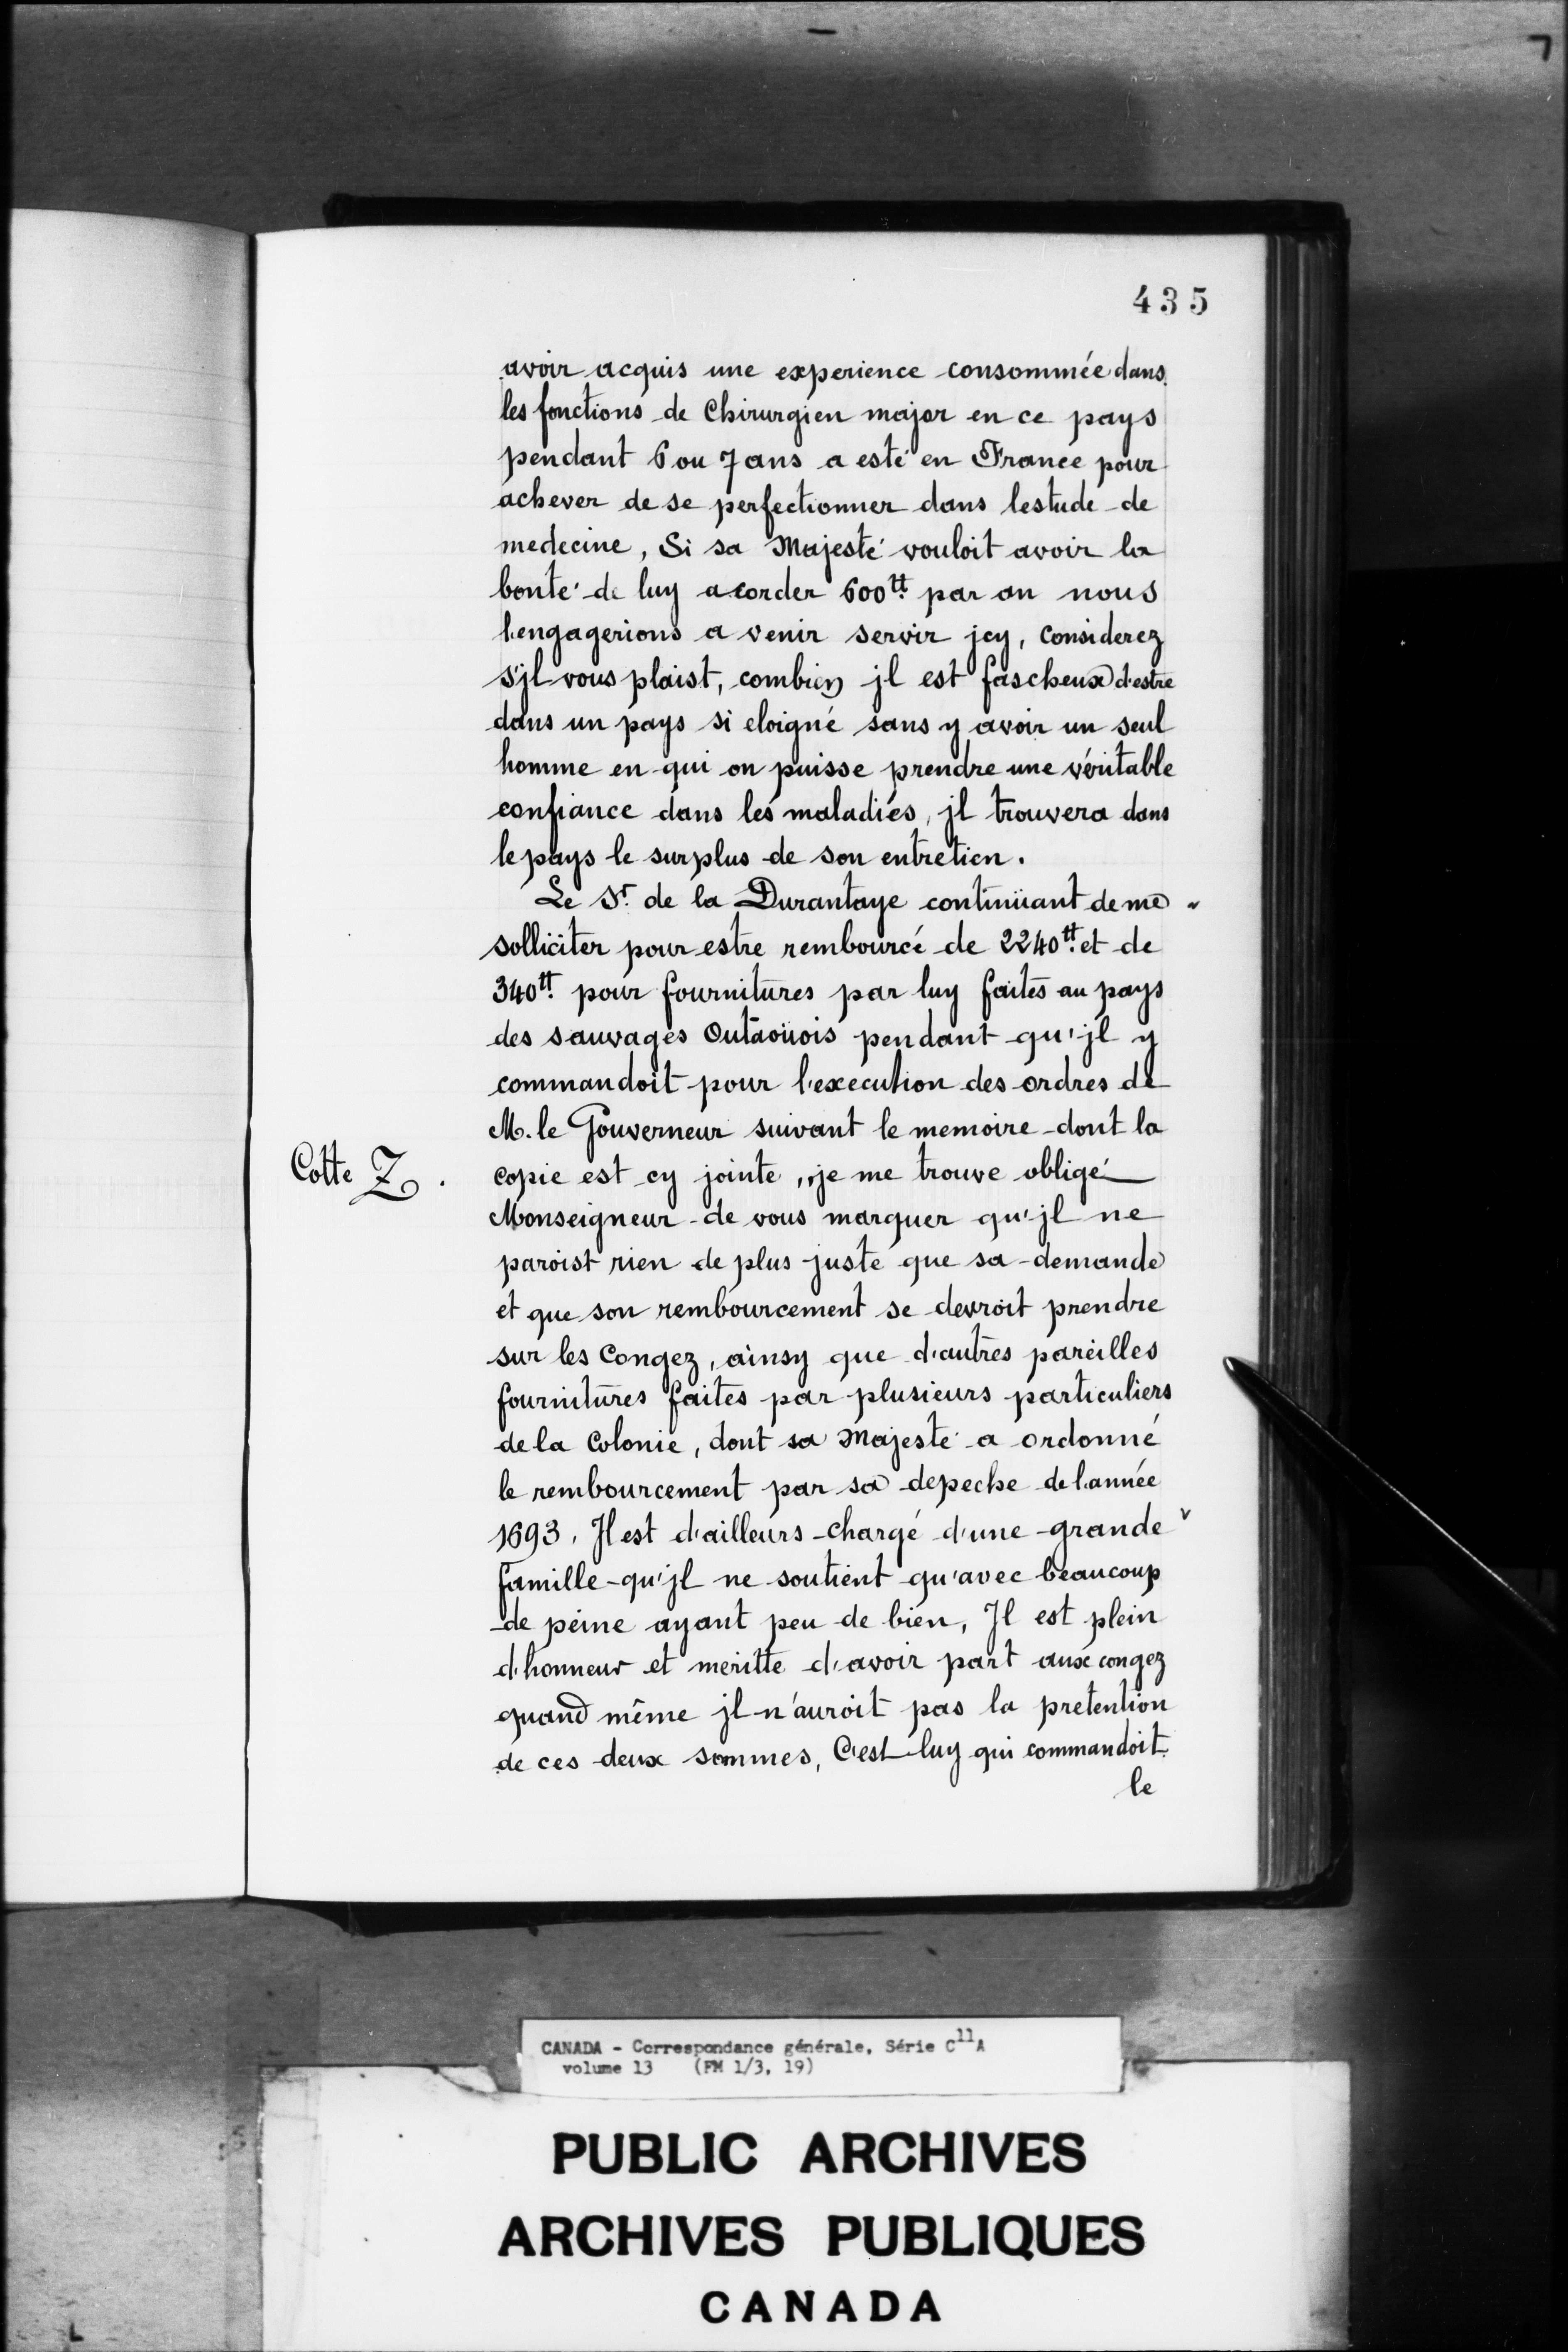 435
avoir acquis une experience consommée dans
les fonctions de Chirurgien major en ce pays
pendant 6 ou 7 ans a esté en France pour
achever de se perfectionner dans lestude de
medecine, Si sa Majesté vouloit avoir la
bonté de luy acorder 600tt par an nous
l'engagerions a venir servir jcy, considerez
s'jl vous plaist, combien jl est fascheux d'estre
dans un pays si eloigné sans y avoir un seul
homme en qui on puisse prendre une véritable
confiance dans les maladies, jl trouvera dans
le pays le surplus de son entretien.
Le Sr. de la Durantaye continüant de me
solliciter pour estre rembourcé de 2240tt et de
340tt pour fournitures par luy faites au pays
des sauvages Outaoüois pendant qu'jl y
commandoit pour l'execution des ordres de
M. le Gouverneur suivant le memoire dont la
Cotte Z. copie est cy jointe, je me trouve obligé
Monseigneur de vous marquer qu'jl ne
paroist rien de plus juste que sa demande
et que son rembourcement se devroit prendre
sur les Congez, ainsy que d'autres pareilles
fournitures faites par plusieurs particuliers
de la Colonie, dont sa Majesté a ordonné
le rembourcement par sa depeche de l'année
1693. Jl est d'ailleurs chargé d'une grande
famille qu'jl ne soutient qu'avec beaucoup
de peine ayant peu de bien, Jl est plein
d'honneur et meritte d'avoir part aux congez
quand même jl n'auroit pas la pretention
de ces deux sommes, C'est luy qui commandoit
le
CANADA - Correspondance générale, Série C11A
volume 13 (FM 1/3, 19)
PUBLIC ARCHIVES
ARCHIVES PUBLIQUES
CANADA